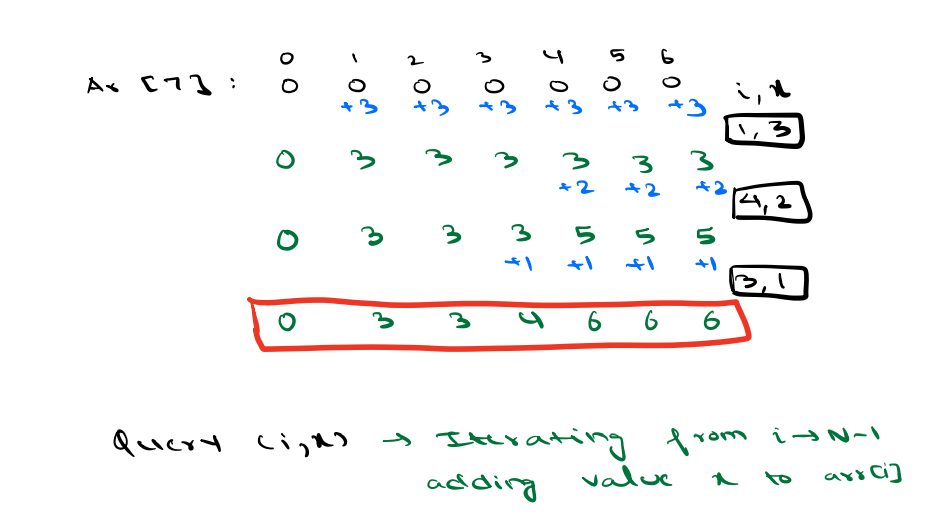 0 1 2 3 4 5 6
Ar [7] : 0 0 0 0 0 0 0 i, x
+3 +3 +3 +3 +3 +3
1, 3
0 3 3 3 3 3 3
+2 +2 +2
4, 2
0 3 3 3 5 5 5
+1 +1 +1 +1
3, 1
0 3 3 4 6 6 6
Query (i,x) → Iterating from i→N-1
adding value x to arr[i]